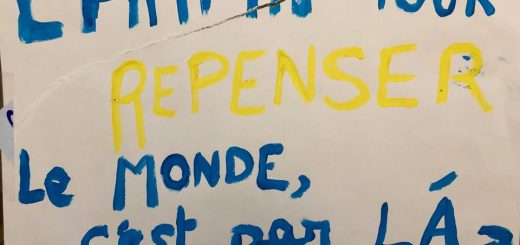 POUR
REPENSER
Le MONDE,
c'est par LÁ